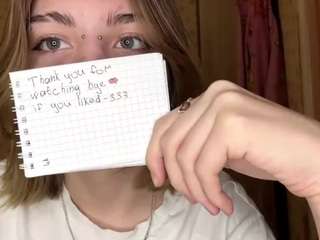 Thank you for
watching bye
if you liked-333